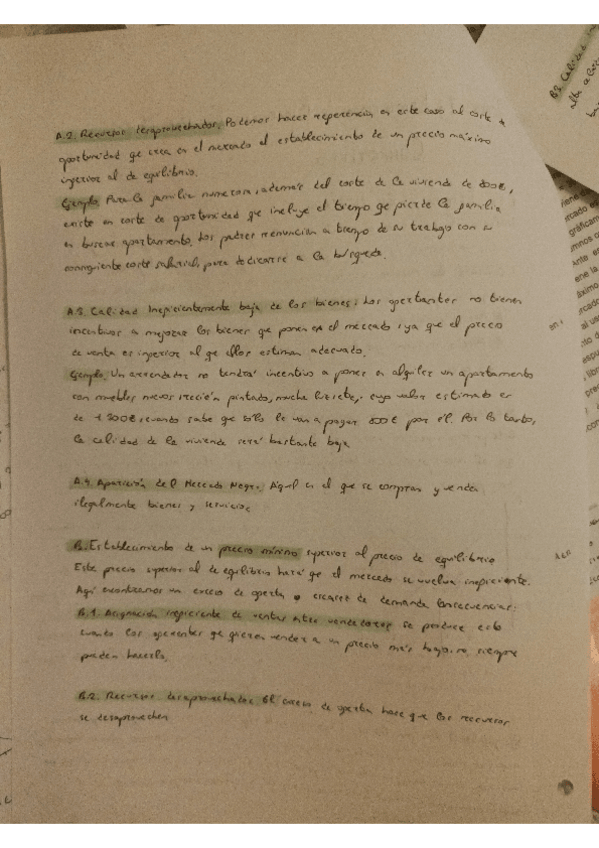 A.2. Recursos desaprovechados. Podemos hacer referencia en este caso al coste de
oportunidad qe crea en el mercado el establecimiento de un precio máximo
inferior al de equilibrio.
Ejemplo. Para la familia numerosa, además del coste de la vivienda de 800€,
existe un coste de oportunidad qe incluye el tiempo qe pierde la familia
en buscar apartamento. Los padres renuncian a tiempo de su trabajo con su
consiguiente coste salarial, para dedicarse a la búsqueda.
A.3. Calidad Ineficientemente baja de los bienes. Los ofertantes no tienen
incentivos a mejorar los bienes que ponen en el mercado, ya que el precio
de venta es inferior al qe ellos estiman adecuado.
Ejemplo. Un arrendador no tendrá incentivo a poner en alquiler un apartamento
con muebles nuevos, recién pintado, mucha luz, etc., cuyo valor estimado es
de 1.200€, cuando sabe que sólo le van a pagar 800€ por él. Por lo tanto,
la calidad de la vivienda será bastante baja
A.4. Aparición del Mercado Negro. Aquel en el que se compran y venden
ilegalmente bienes y servicios
B. Establecimiento de un precio mínimo superior al precio de equilibrio
Este precio superior al de equilibrio hará qe el mercado se vuelva ineficiente.
Aquí encontramos un exceso de oferta o escasez de demanda. Consecuencias:
B.1. Asignación ineficiente de ventas entre vendedores se produce esto
cuando los oferentes qe quieren vender a un precio más bajo, no siempre
pueden hacerlo.
B.2. Recursos desaprovechados. El exceso de oferta hace que los recursos
se desaprovechen
B3. Calidad